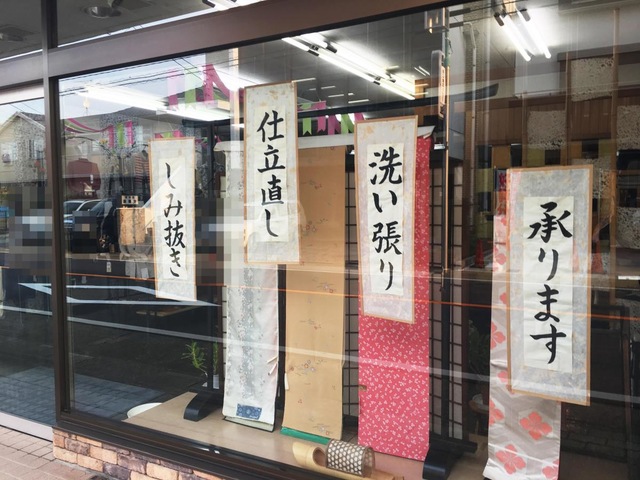 しみ抜き
仕立直し
洗い張り
承ります